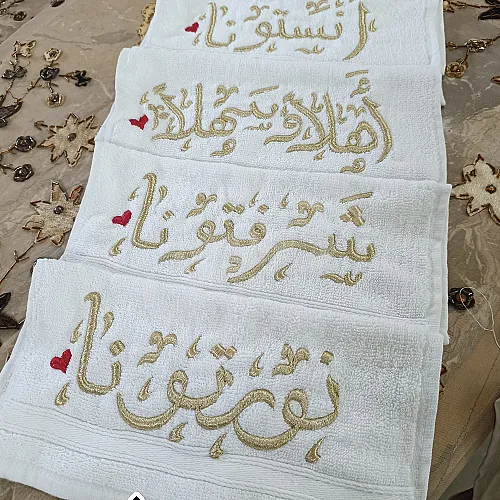 آنستونا
أهلاً وسهلاً
شرفتونا
نورتونا